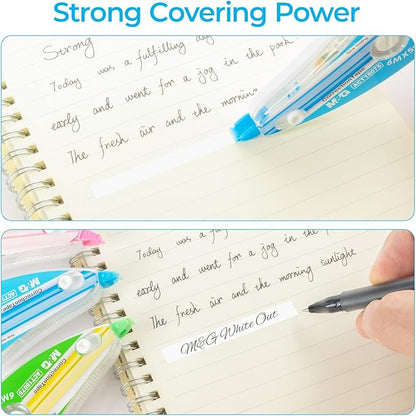 Strong Covering Power
Strong
Today was a fulfilling day
early and went for a jog in the park
The fresh air and the mornin
M&G
ACT18075
6MX5
Today was a
early and went for a jog in the park
The fresh air and the morning sunlight
M&G White Out
M&G
ACT18075
Correction Tape
M&G
ACT18075
Correction Tape
6M